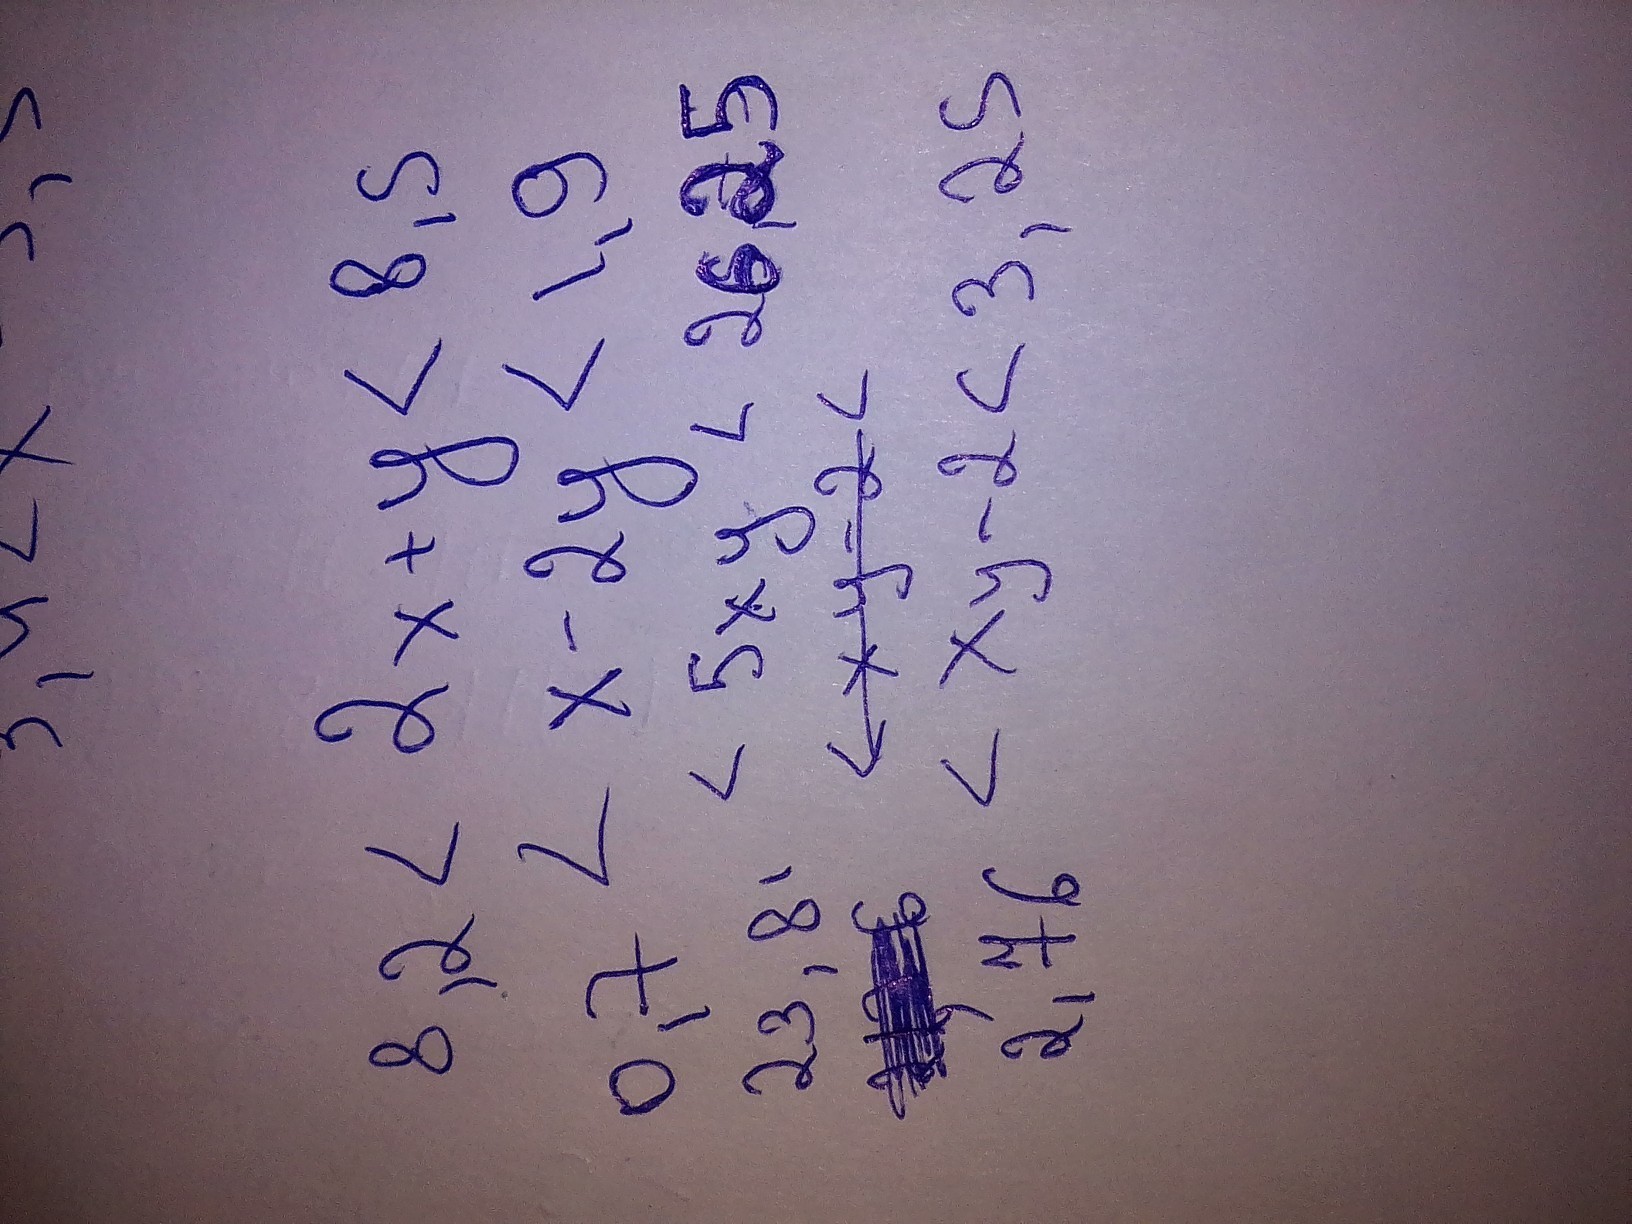 3,4 < x < 3,5
8,2 < 2x+y < 8,5
0,7 < x-2y < 1,9
23,8 < 5xy < 26,25
< xy-2 <
2,76 < xy-2 < 3,25